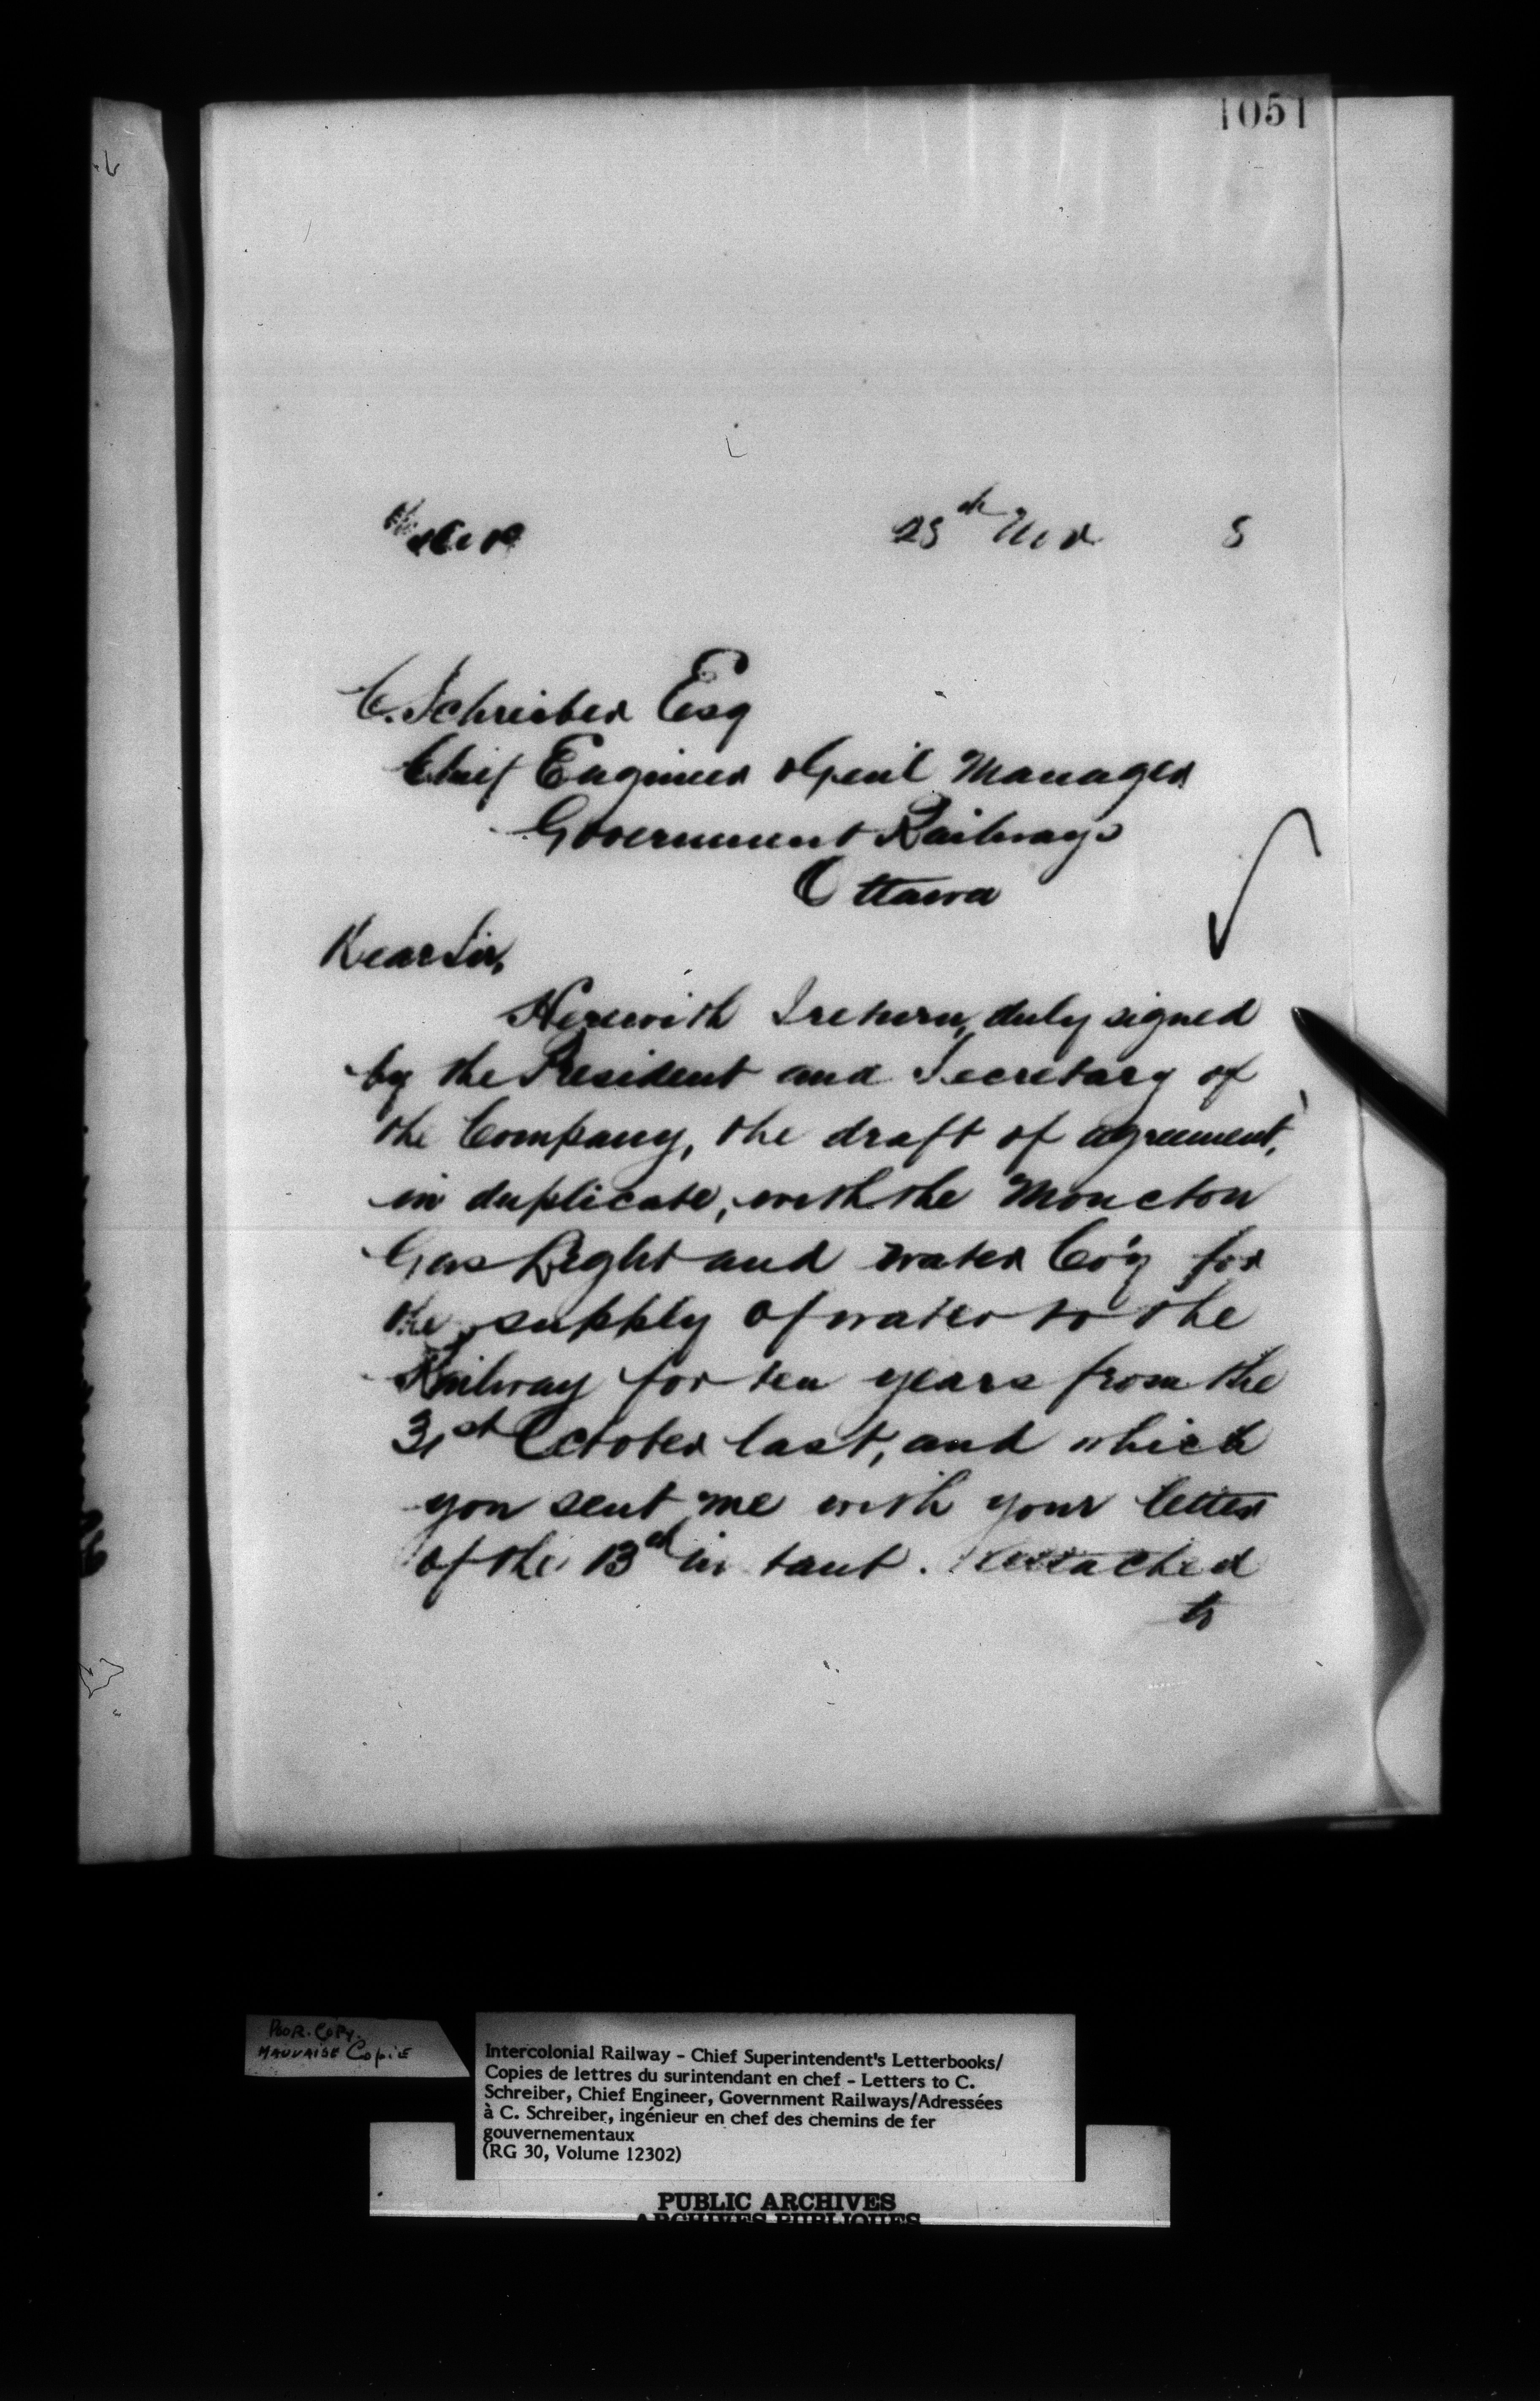 1051
25th Nov 5
C. Schreiber Esq
Chief Engineer & Gen'l Manager
Government Railways
Ottawa
Dear Sir,
Herewith I return, duly signed
by the President and Secretary of
the Company, the draft of agreement,
in duplicate, with the Moncton
Gas Light and Water Co'y for
the supply of water to the
Railway for ten years from the
31st October last, and which
you sent me with your letter
of the 13th instant. Attached
to
POOR COPY.
MAUVAISE COPIE
Intercolonial Railway – Chief Superintendent's Letterbooks/
Copies de lettres du surintendant en chef – Letters to C.
Schreiber, Chief Engineer, Government Railways/Adressées
à C. Schreiber, ingénieur en chef des chemins de fer
gouvernementaux
(RG 30, Volume 12302)
PUBLIC ARCHIVES
ARCHIVES PUBLIQUES